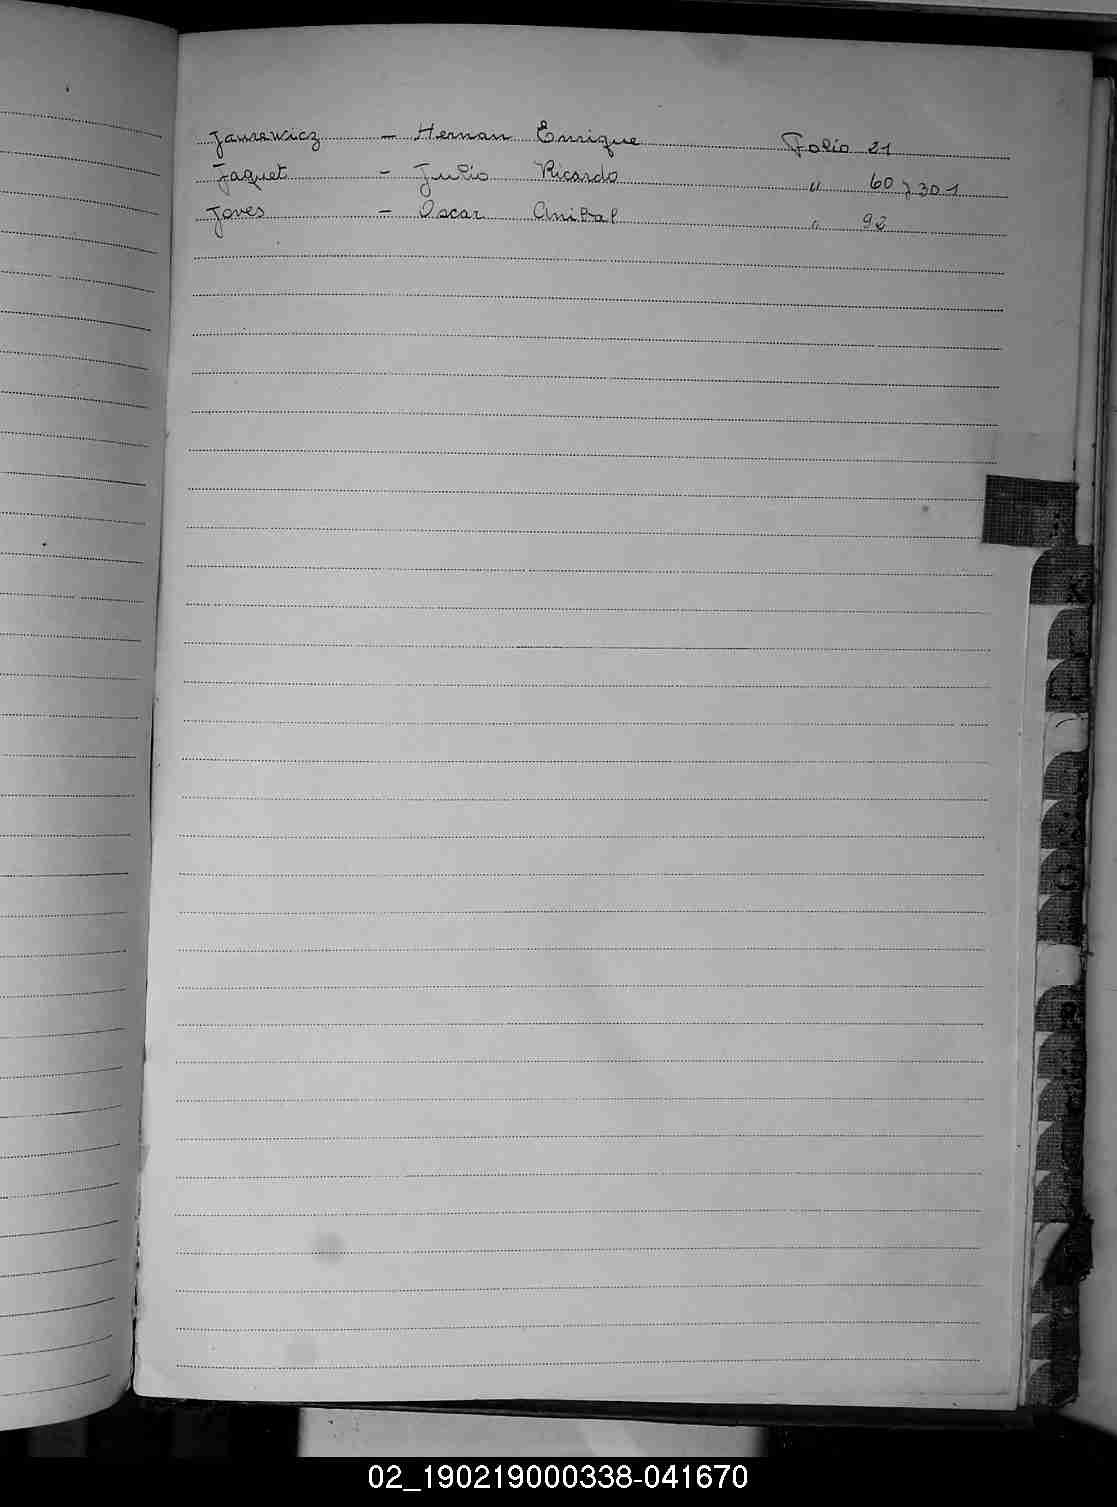 Jaurewicz - Hernan Enrique Folio 21
Jaquet - Julio Ricardo " 60 y 301
Joves - Oscar Anibal " 92
K
02_190219000338-041670